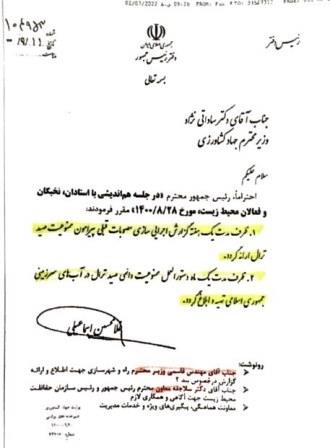 02/07/2022 09:26
رئیس دفتر
جمهوری اسلامی ایران
دفتر رئیس جمهور
بسمه تعالی
جناب آقای دکتر ساداتی نژاد
وزیر محترم جهاد کشاورزی
سلام علیکم
احتراماً، رئیس جمهور محترم «در جلسه هم‌اندیشی با استادان، نخبگان
و فعالان محیط زیست، مورخ ۱۴۰۰/۸/۲۸» مقرر فرمودند:
۱. ظرف مدت یک هفته گزارش اجرایی سازی مصوبات قبلی پیرامون ممنوعیت صید
ترال ارائه گردد.
۲. ظرف مدت یک ماه دستورالعمل ممنوعیت دائمی صید ترال در آب‌های سرزمینی
جمهوری اسلامی تهیه و ابلاغ گردد.
غلامحسین اسماعیلی
رونوشت:
جناب آقای مهندس قاسمی وزیر محترم راه و شهرسازی جهت اطلاع و ارائه
گزارش درخصوص بند ۲
جناب آقای دکتر سلاجقه معاون محترم رئیس جمهور و رئیس سازمان حفاظت
محیط زیست جهت آگاهی و همکاری لازم
معاونت هماهنگی، پیگیری‌های ویژه و خدمات مدیریت